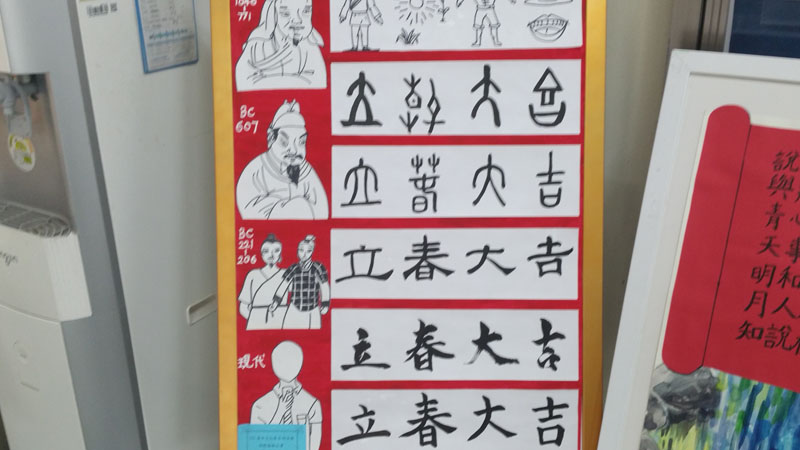 771
立春大吉
BC
607
立春大吉
BC
221
-
206
立春大吉
立春大吉
現代
立春大吉
心事和人說
說與青天明月知